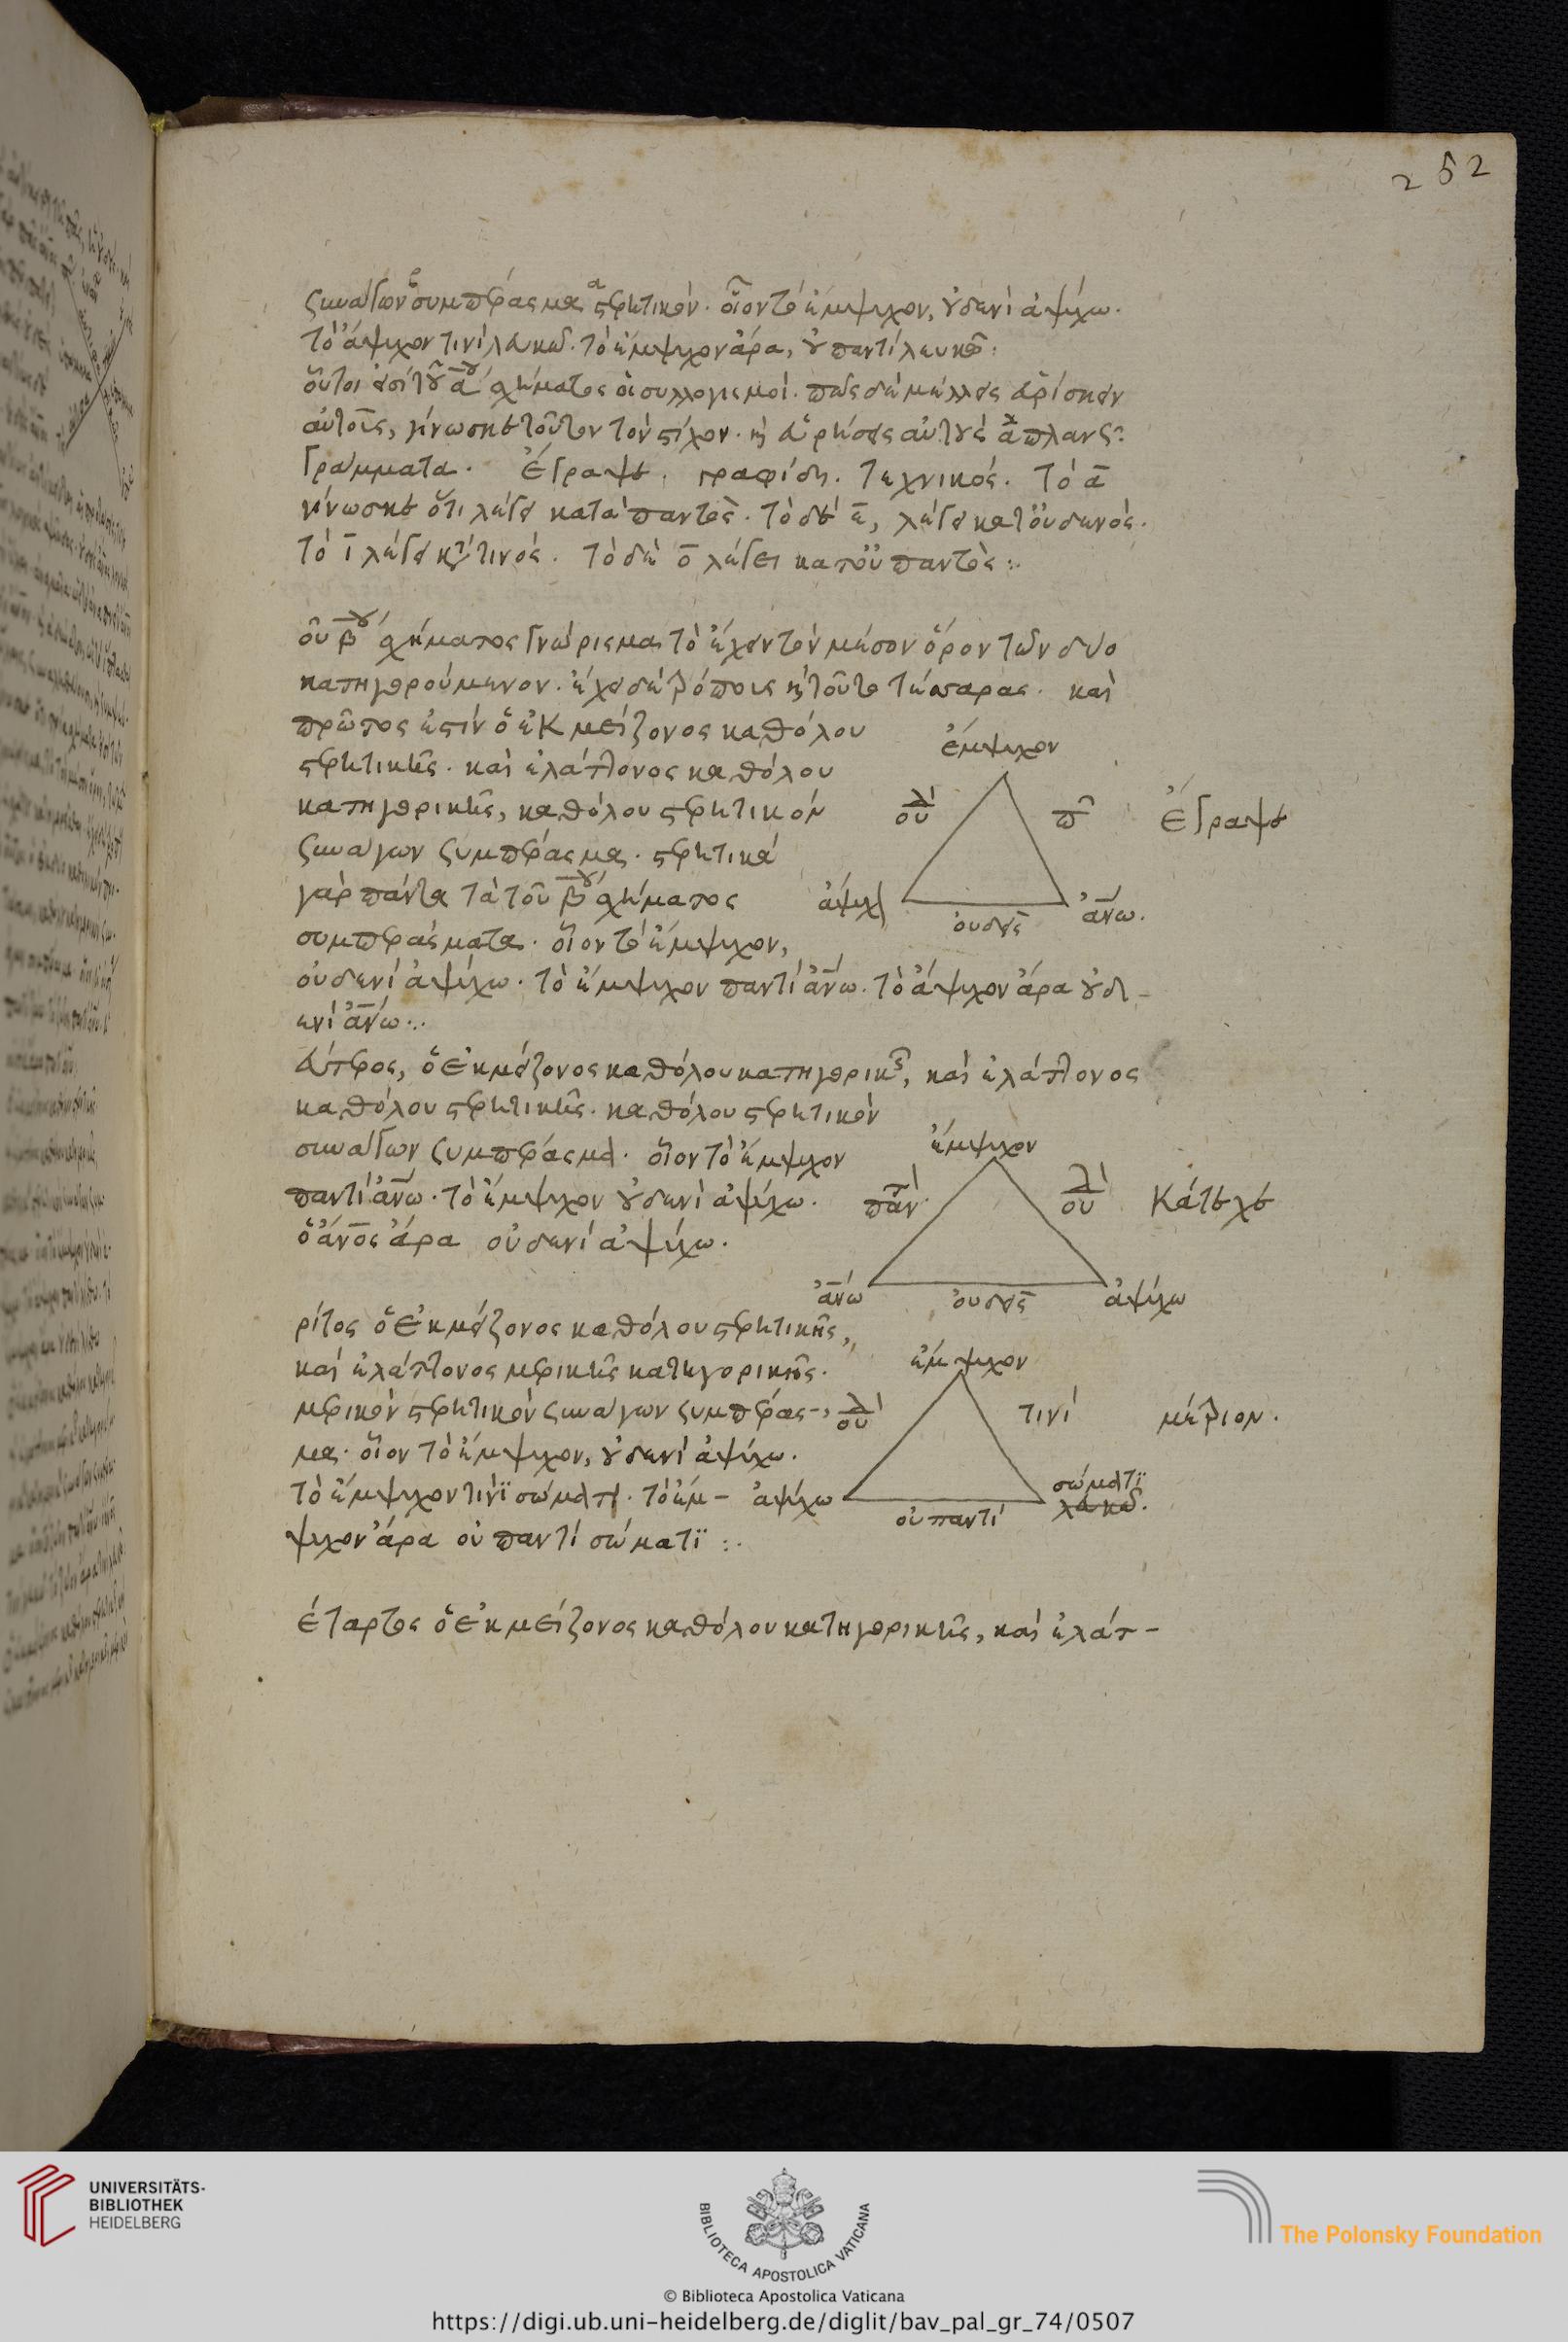 252
συνάγων συμπέρασμα στερητικόν. οἷον τὸ ἔμψυχον, οὐδενὶ ἀψύχω.
τὸ ἄψυχον τινὶ λευκῶ. τὸ ἔμψυχον ἄρα, οὐ παντὶ λευκῶ:
οὗτοι εἰσὶ τοῦ α̅ου σχήματος οἱ συλλογισμοί. πῶς δὲ μέλλεις εὑρίσκειν
αὐτοῖς, γίνωσκε τοῦτον τὸν στίχον. καὶ εὑρήσεις αὐτοὺς ἀπλανῶς:
Γράμματα. ἔγραψε. γραφίδι. τεχνικός. τὸ α̅
γίνωσκε ὅτι λέγει κατὰ παντὸς. τὸ δὲ ε̅, λέγει κατ' οὐδενός.
τὸ ι̅ λέγει κατὰ τινός. τὸ δὲ ο̅ λέγει κατ' οὐ παντὸς:.
οῦ β̅ου σχήματος γνώρισμα τὸ ἔχειν τὸν μέσον ὅρον τῶν δύο
κατηγορούμενον. ἔχει δὲ τρόποις καὶ τοῦτο τέσσαρας. καὶ
πρῶτος ἐστὶν ὁ ἐκ μείζονος καθόλου
στερητικῆς. καὶ ἐλάττονος καθόλου
κατηγορικῆς, καθόλου στερητικὸν
συνάγων συμπέρασμα. στερητικὰ
γὰρ πάντα τὰ τοῦ β̅ου σχήματος
συμπεράσματα. οἷον τὸ ἔμψυχον,
οὐδενὶ ἀψύχω. τὸ ἔμψυχον παντὶ ἀν̅ω. τὸ ἄψυχον ἄρα οὐδ-
ενὶ ἀν̅ω:.
ἔμψυχον
οὐδενὶ
π
ἔγραψε
ἀψύχ
οὐδεὶς
ἀν̅ω.
εύτερος, ὁ ἐκ μείζονος καθόλου κατηγορικῆς, καὶ ἐλάττονος
καθόλου στερητικῆς. καθόλου στερητικὸν
συνάγων συμπέρασμα. οἷον τὸ ἔμψυχον
παντὶ ἀν̅ω. τὸ ἔμψυχον οὐδενὶ ἀψύχω.
ὁ ἄν̅ος ἄρα οὐδενὶ ἀψύχω.
ἔμψυχον
πᾶν
Κάτεχε
ἀν̅ω
οὐδεὶς
ἀψύχω
ρίτος ὁ ἐκ μείζονος καθόλου στερητικῆς,
καὶ ἐλάττονος μερικῆς κατηγορικῆς.
μερικὸν στερητικὸν συνάγων συμπέρασ-
μα. οἷον τὸ ἔμψυχον, οὐδενὶ ἀψύχω.
τὸ ἔμψυχον τινὶ σώματι. τὸ ἔμ-
ψυχον ἄρα οὐ παντὶ σώματϊ:.
ἔμψυχον
τινὶ
μέτριον.
ἀψύχω
οὐ παντὶ
σώματϊ
λευκῶ.
έταρτος ὁ ἐκ μείζονος καθόλου κατηγορικῆς, καὶ ἐλάτ-
UNIVERSITÄTS-
BIBLIOTHEK
HEIDELBERG
BIBLIOTECA APOSTOLICA VATICANA
The Polonsky Foundation
© Biblioteca Apostolica Vaticana
https://digi.ub.uni-heidelberg.de/diglit/bav_pal_gr_74/0507